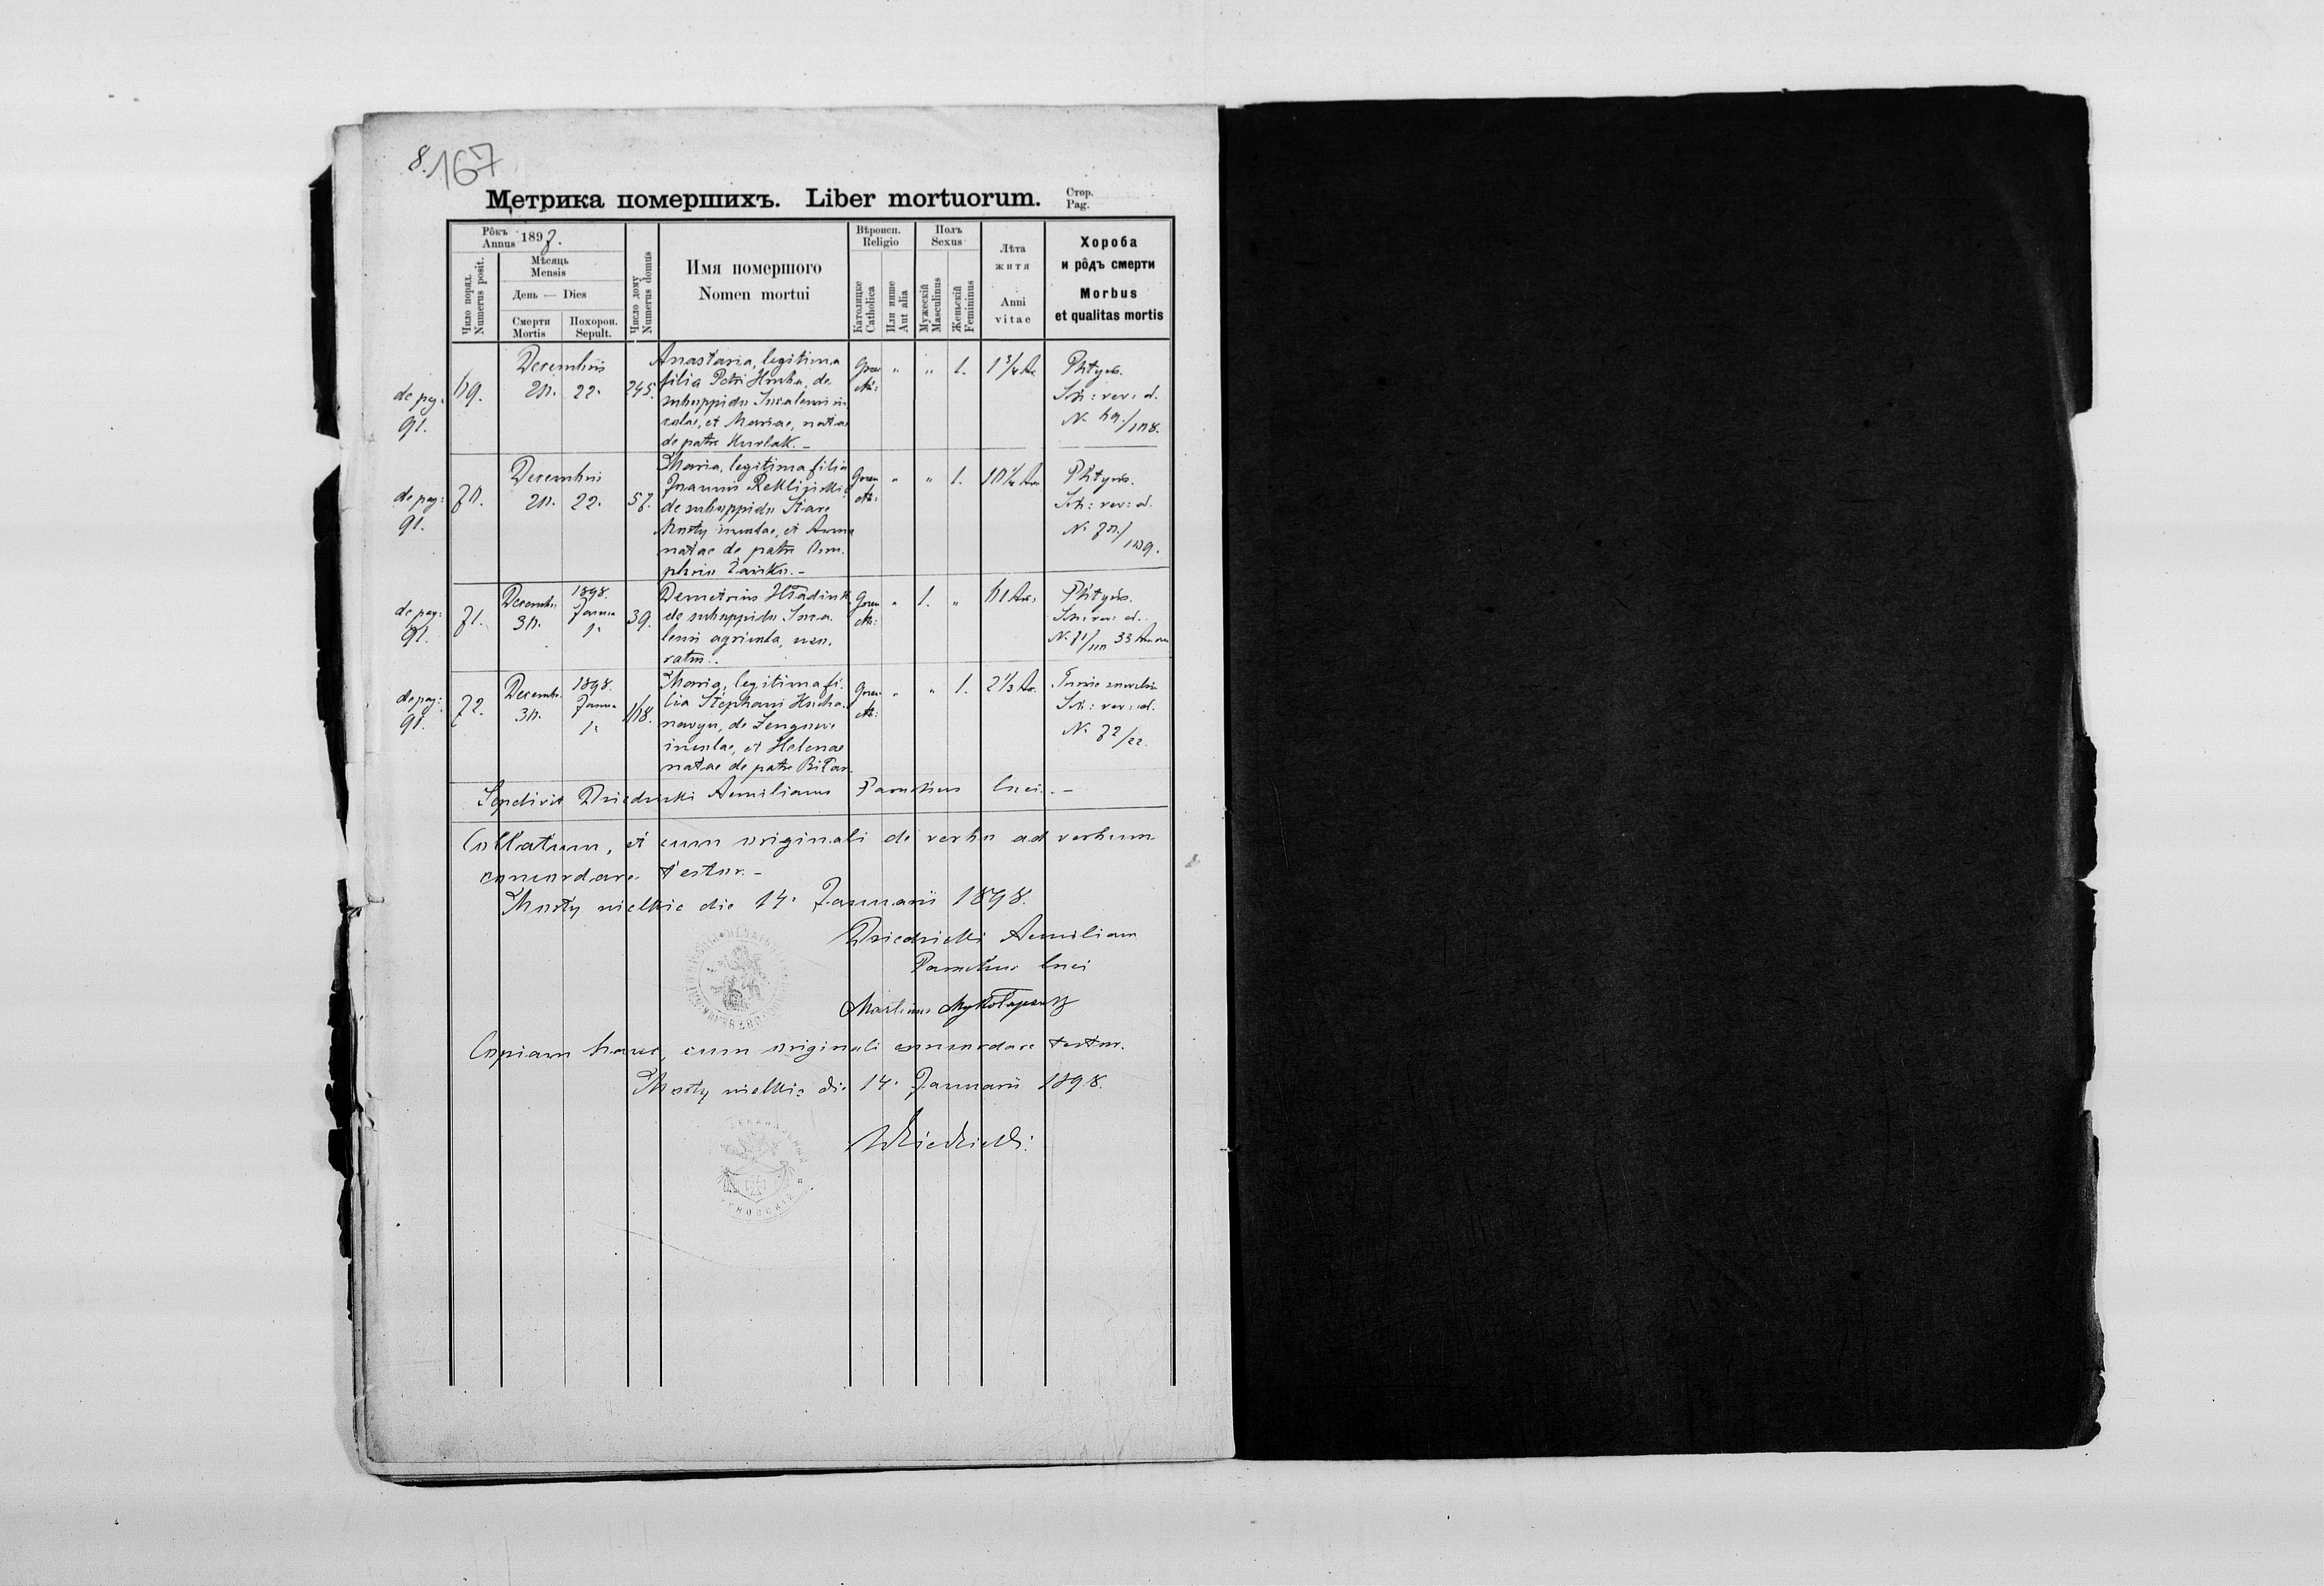 8. 167
Метрика помершихъ. Liber mortuorum.
Стор.
Pag.
Рôкъ
Annus 1897.
Число поряд.
Numerus posit.
Мѣсяць
Mensis
День — Dies
Смерти
Mortis
Похорон.
Sepult.
Число дому
Numerus domus
Имя помершого
Nomen mortui
Вѣроисп.
Religio
Католицке
Catholica
Или инше
Aut alia
Полъ
Sexus
Мужескій
Masculinus
Женьскій
Femininus
Лѣта
житя
Anni
vitae
Хороба
и рôдъ смерти
Morbus
et qualitas mortis
de pag:
91.
69.
Decembris
20. 22.
245.
Anastasia, legitima
filia Petri Hucha, de
suboppido
colae, et Mariae, natae
de patre Kurlak. –
Graeco
" " 1.
1 3/4 An.
Phtysis.
Sch: rev: d.
N. 69./108.
de pag:
91.
70.
Decembris
20. 22.
57.
Maria, legitima filia
Joannis
de suboppido Stare
Mosty incolae, et Annae
natae de patre Onu-
phrio
Graeco
" " 1.
10 1/4 An
Phtysis.
Sch: rev: d.
N. 70./109.
de pag:
91.
71.
Decembr.
30.
1898.
Janua
1.
39.
Demetrius Hładiuk
de suboppido
agricola, uxo-
ratus.
Graeco
" 1. "
61 An:
Phtysis.
Sch: rev: d.
N. 71/110 33 Annorum
de pag:
91.
72.
Decembr.
30.
1898.
Janua
1.
168.
Maria, legitima fi-
lia Stephani
de
incolae, et Helenae
natae de patre
Graeco
" " 1.
2 1/3 An.
Sch: rev: d.
N. 72/22.
Sepelivit Dziedzicki Aemilianus Parochus loci. –
Collatum, et cum originali de verbo ad verbum
concordare testor. –
Mosty wielkie die 14. Januarii 1898.
Dziedzicki Aemilian
Parochus loci
Martinus
Copiam hanc, cum originali concordare testor.
Mosty wielkie die 14. Januarii 1898.
Dziedzicki